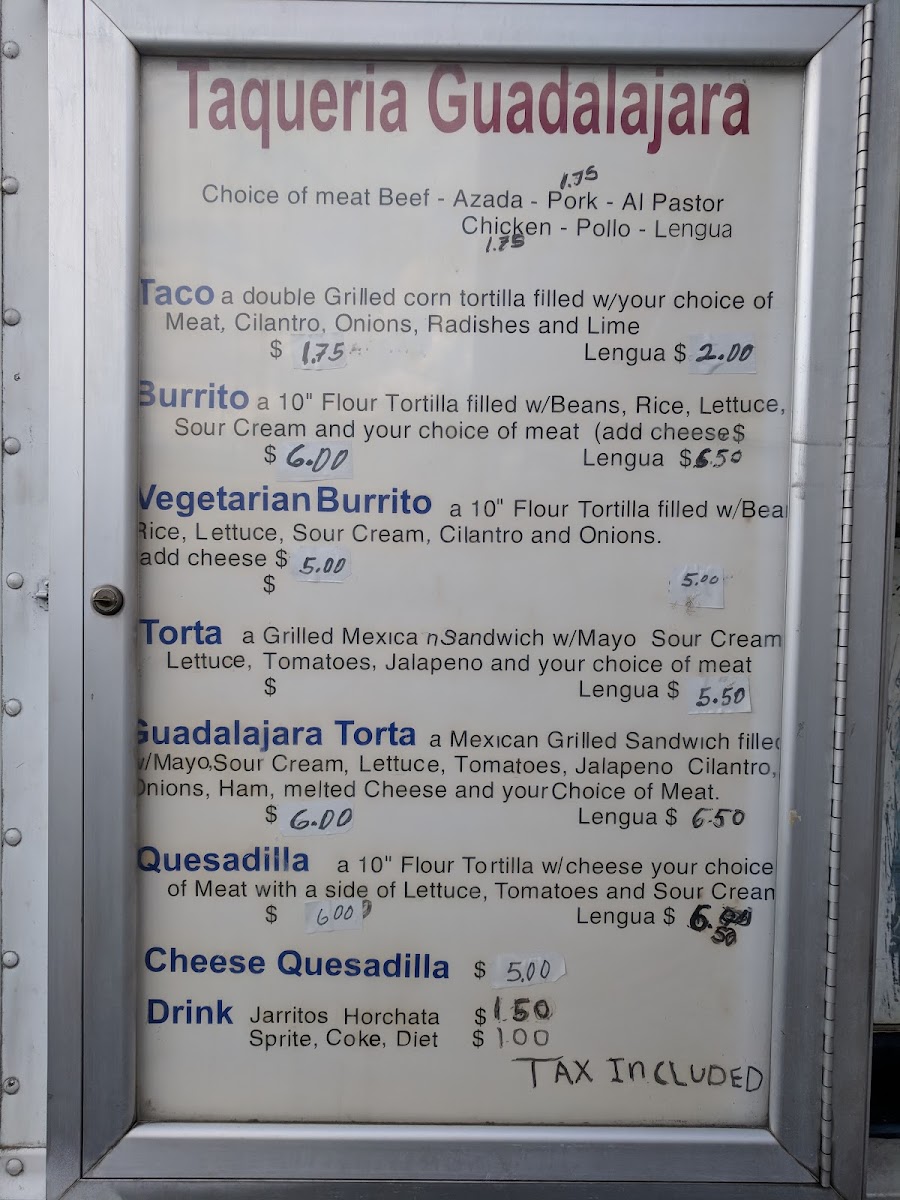 Taqueria Guadalajara
1.75
Choice of meat Beef - Azada - Pork - Al Pastor
Chicken - Pollo - Lengua
1.75
Taco a double Grilled corn tortilla filled w/your choice of
Meat, Cilantro, Onions, Radishes and Lime
$ 1.75 Lengua $ 2.00
Burrito a 10" Flour Tortilla filled w/Beans, Rice, Lettuce,
Sour Cream and your choice of meat (add cheese $
$ 6.00 Lengua $6.50
Vegetarian Burrito a 10" Flour Tortilla filled w/Bea
Rice, Lettuce, Sour Cream, Cilantro and Onions.
add cheese $ 5.00
$ 5.00
Torta a Grilled Mexican Sandwich w/Mayo Sour Cream
Lettuce, Tomatoes, Jalapeno and your choice of meat
$ Lengua $ 5.50
Guadalajara Torta a Mexican Grilled Sandwich filled
w/Mayo,Sour Cream, Lettuce, Tomatoes, Jalapeno Cilantro,
Onions, Ham, melted Cheese and your Choice of Meat.
$ 6.00 Lengua $ 6.50
Quesadilla a 10" Flour Tortilla w/cheese your choice
of Meat with a side of Lettuce, Tomatoes and Sour Cream
$ 6.00 Lengua $ 6.50
Cheese Quesadilla $ 5.00
Drink Jarritos Horchata $ 1.50
Sprite, Coke, Diet $ 1.00
TAX INCLUDED